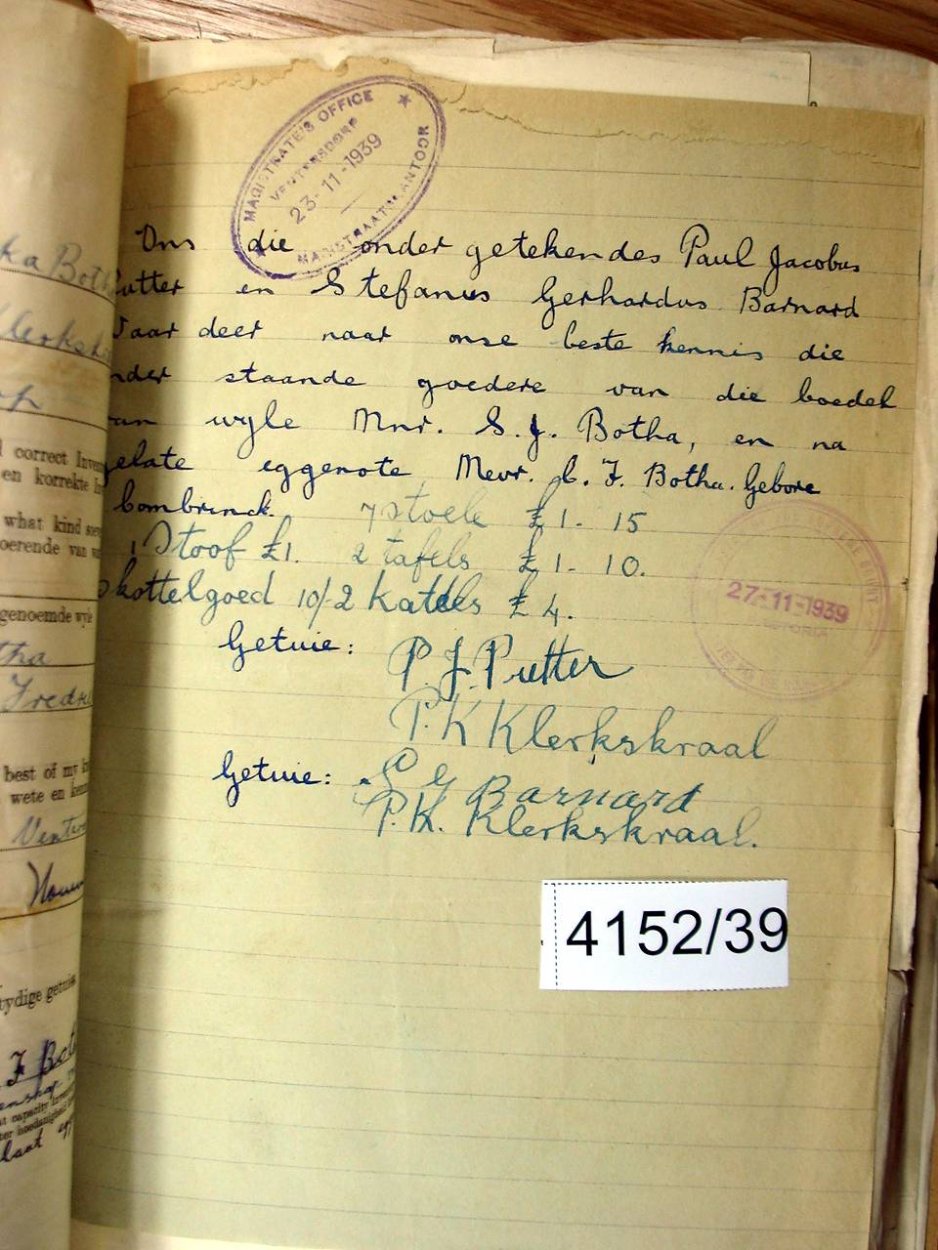 MAGISTRATE'S OFFICE
VENTERSDORP
23-11-1939
MAGISTRAATSKANTOOR
Ons die onder getekendes Paul Jacobus
Putter en Stefanus Gerhardus Barnard
Waar deer naar onse beste kennis die
onder staande goedere van die boedel
van wyle Mnr. S.J. Botha, en na
gelate eggenote Mevr. C. F. Botha. Gebore
Combrinck. 7 stoele £1. 15
1 Stoof £1. 2 tafels £1. 10.
Skottelgoed 10/- 2 Katels £4.
Getuie: P. J. Putter
P.K Klerkskraal
Getuie: S G Barnard
P.K. Klerkskraal.
27-11-1939
PRETORIA
4152/39
ka Both
Klerksk
rp
d correct Inven
en korrekte In
what kind soev
oerende van wa
genoemde wyle
tha
Fredri
best of my k
wete en kenn
Venters
Novem
tydige getuie
F Bot